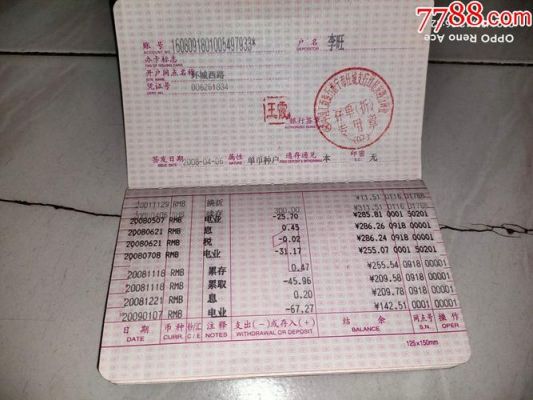 7788.com
OPPO Reno Ace
账号 1608091801005497933* 户名 李旺
办卡标志
开户网点名称 环城西路
凭证号 006261834
王霞
银行签章
存单(折)
专用章
签发日期 2008-04-06 属性 单币种户 通存通兑 本 印密 无
20011129 RMB 换折 ¥11.51 0116 01768
300.00 ¥311.51 0116 01768
20080507 RMB 电业 -25.70 ¥285.81 0001 50201
20080621 RMB 息 0.45 ¥286.26 0918 00001
20080621 RMB 税 -0.02 ¥286.24 0918 00001
20080708 RMB 电业 -31.17 ¥255.07 0001 50201
20081118 RMB 累存 0.47 ¥255.54 0918 00001
20081118 RMB 累取 -45.96 ¥209.58 0918 00001
20081221 RMB 息 0.20 ¥209.78 0918 00001
20090107 RMB 电业 -67.27 ¥142.51 0001
日期 币种 钞/汇 注释 支出(-)或存入(+) 结余 网点号 操作
DATE CURR. C/E NOTES WITHDRAWAL OR DEPOSIT BALANCE S.N. OPER
125x150mm